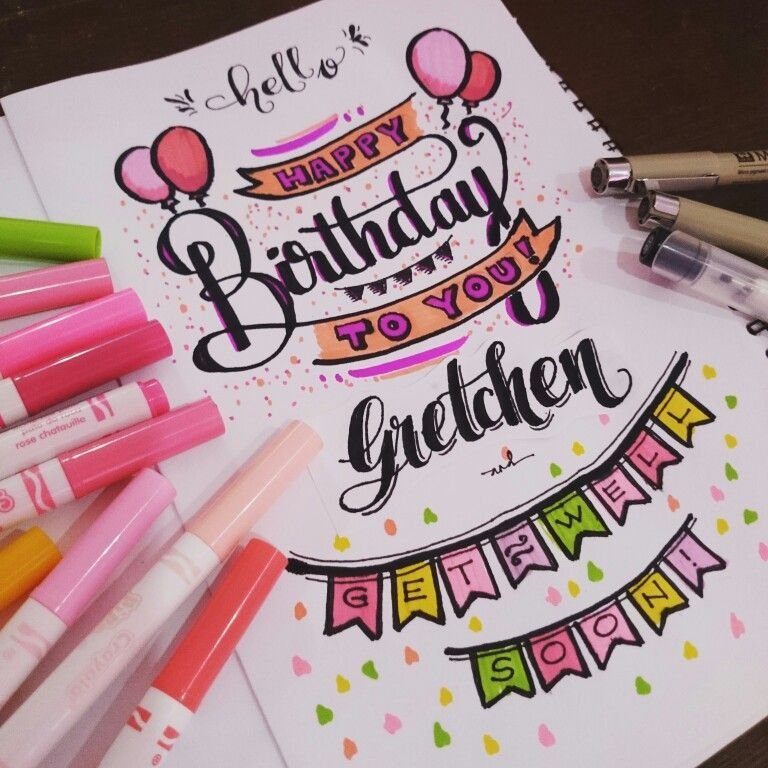 hello
HAPPY
Birthday
TO YOU!
Gretchen
GET & WELL
SOON!
rose chatouille
Crayola